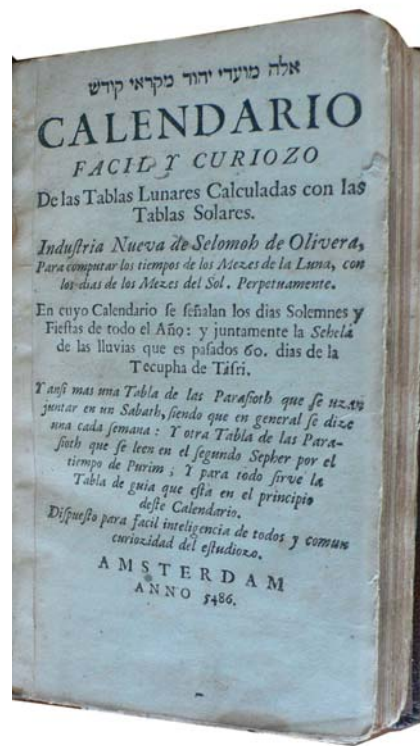 אלה מועדי יהוד מקראי קודש
CALENDARIO
FACIL Y CURIOZO
De las Tablas Lunares Calculadas con las
Tablas Solares.
Induſtria Nueva de Selomoh de Olivera,
Para computar los tiempos de los Mezes de la Luna, con
los dias de los Mezes del Sol. Perpetuamente.
En cuyo Calendario ſe ſeñalan los dias Solemnes y
Fieſtas de todo el Año: y juntamente la Sehelá
de las lluvias que es paſados 60. dias de la
Tecupha de Tiſri.
Y anſi mas una Tabla de las Paraſioth que ſe uzan
juntar en un Sabath, ſiendo que en general ſe dize
una cada ſemana: Y otra Tabla de las Para-
ſioth que ſe leen en el ſegundo Sepher por el
tiempo de Purim; Y para todo ſirve la
Tabla de guia que eſta en el principio
deſte Calendario.
Diſpueſto para facil inteligencia de todos y comun
curiozidad del eſtudiozo.
AMSTERDAM
ANNO 5486.